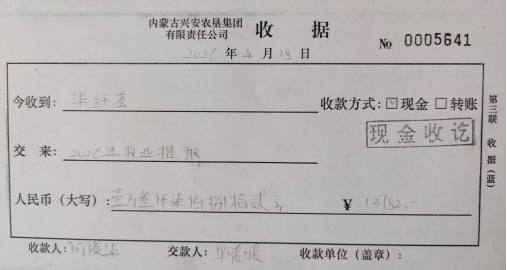 内蒙古兴安农垦集团
有限责任公司 收据
2026年4月18日 № 0005641
今收到： 收款方式：☑现金 □转账
现金收讫
交来：2026年牧业提取
人民币（大写）：壹万叁仟柒佰捌拾贰元 ¥ 13782.-
收款人： 交款人： 收款单位（盖章）：
第三联 收据（蓝）